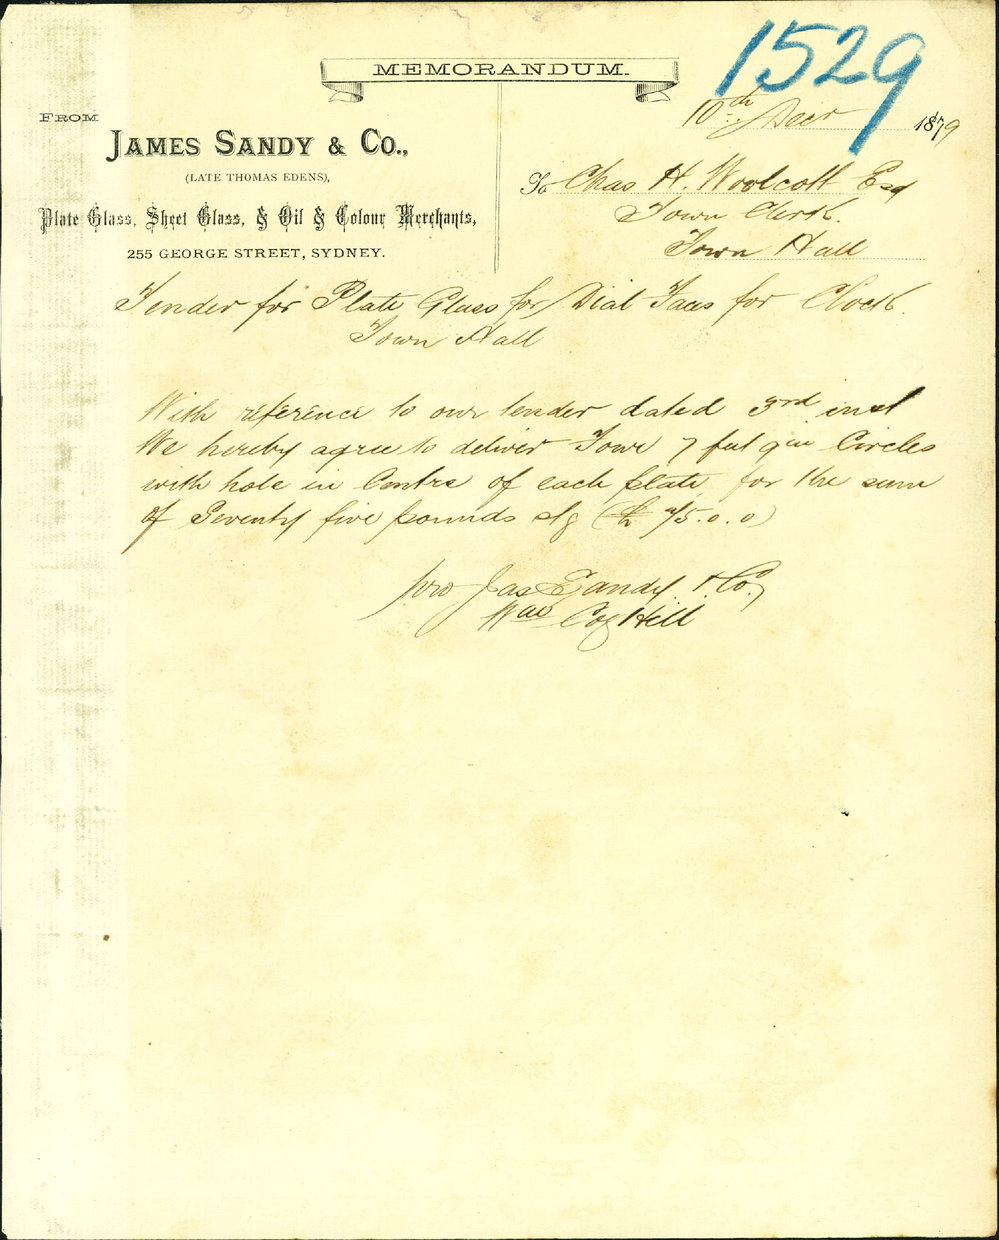 1529
MEMORANDUM.
10th Decr 1879
FROM
JAMES SANDY & CO.,
(LATE THOMAS EDENS),
Plate Glass, Sheet Glass, & Oil & Colour Merchants,
255 GEORGE STREET, SYDNEY.
To Chas H. Woolcott Esq
Town Clerk.
Town Hall
Tender for Plate Glass for Dial Faces for Clock.
Town Hall
With reference to our tender dated 3rd inst
We hereby agree to deliver Four 7 feet 9in Circles
with hole in Centre of each plate for the sum
of Seventy five pounds stg (£ 75.0.0)
pro Jas Sandy & Co.,
Wm CogHill